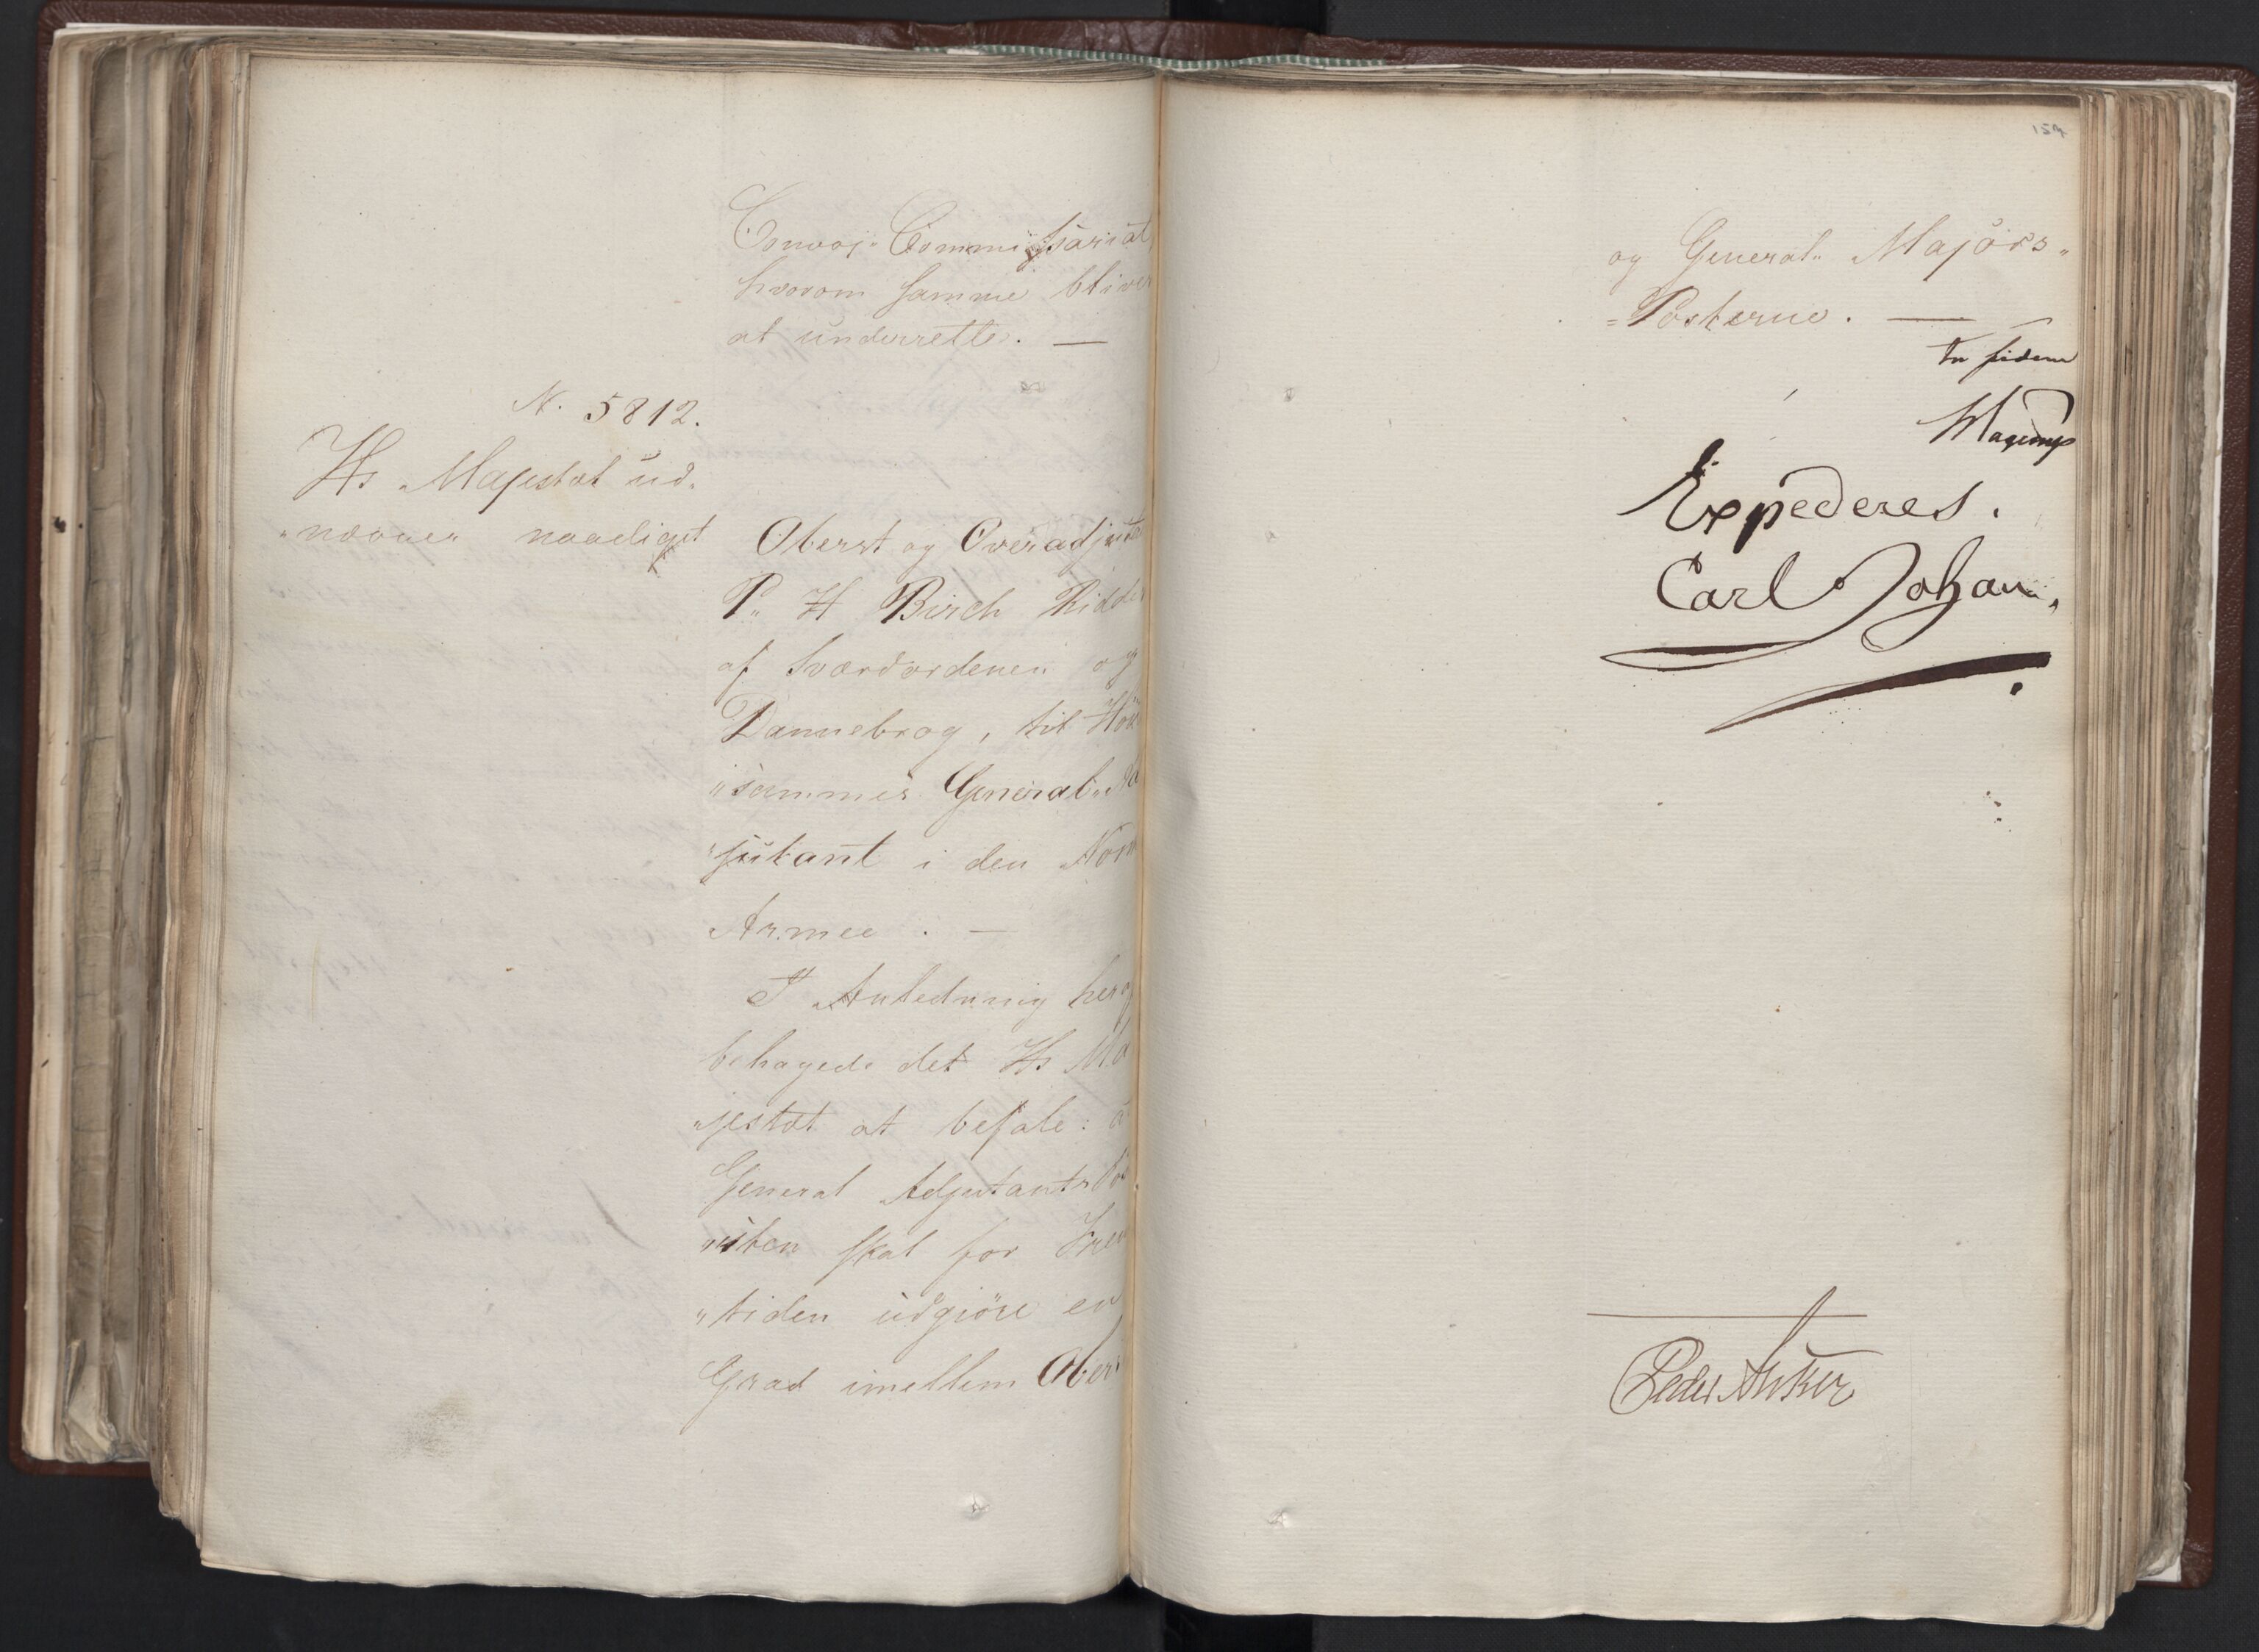 Convoj-Commissariat,
hvorom samme bliver
at underrette. —
N. 5812.
Hs Majestæt ud-
"nævner naadigst
Oberst og Overadjuta
P. H Birch Ridder
af Sværdordenen og
Dannebrog, til Höi
"sammes General-Ad
"jutant i den Norske
Armee. —
I Anledning heraf
behagede det Hs Ma
"jestæt at befale: at
General Adjutants Po
"sten skal for Frem
"tiden udgiöre en
Grad imellem Oberst
154
og General- Majors-
=Posterne. —
In fidem
Expederes.
Carl Johan.
Peder Anker